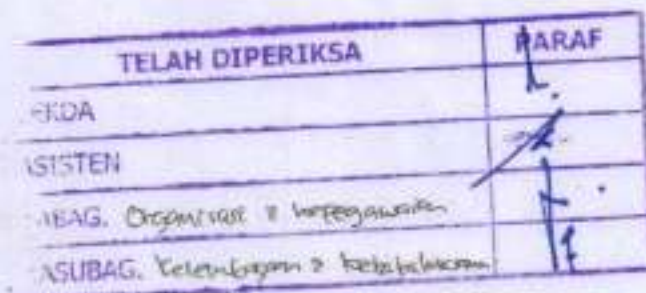 TELAH DIPERIKSA PARAF
EKDA
ASISTEN
ABAG. Organisasi & kepegawaian
ASUBAG. Kelembagaan &